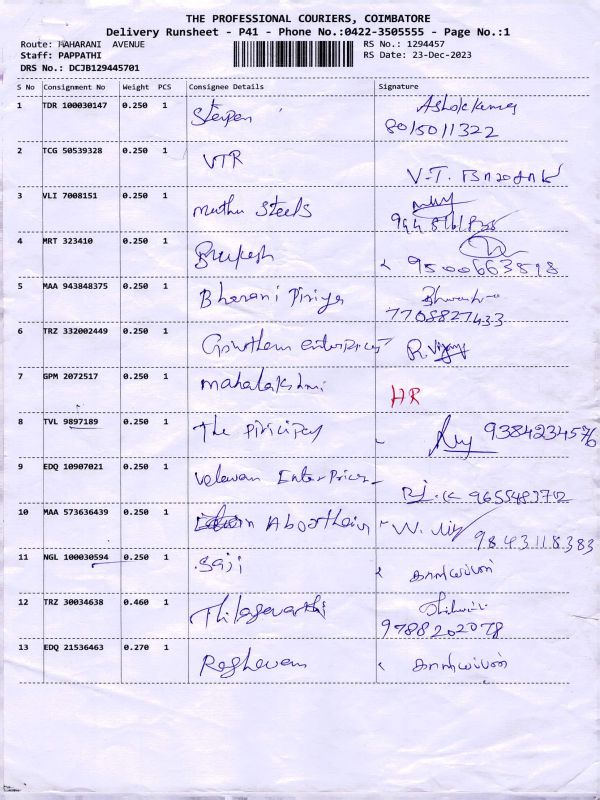 THE PROFESSIONAL COURIERS, COIMBATORE
Delivery Runsheet - P41 - Phone No.:0422-3505555 - Page No.:1
Route: MAHARANI AVENUE RS No.: 1294457
Staff: PAPPATHI RS Date: 23-Dec-2023
DRS No.: DCJB129445701
S No Consignment No Weight PCS Consignee Details Signature
1 TDR 100030147 0.250 1 Ashokkumar
8015011322
2 TCG 50539328 0.250 1 VTR V-T.
3 VLI 7008151 0.250 1 muthu steels
4 MRT 323410 0.250 1 9500663518
5 MAA 943848375 0.250 1 Bharani Piriya
7708827433
6 TRZ 332002449 0.250 1 Gowtham enterprices R.
7 GPM 2072517 0.250 1 mahalakshmi HR
8 TVL 9897189 0.250 1 The 9384234576
9 EDQ 10907021 0.250 1 velavan Enterprices
10 MAA 573636439 0.250 1 9843118383
11 NGL 100030594 0.250 1 Saji
12 TRZ 30034638 0.460 1 Thilagavathi
9788202078
13 EDQ 21536463 0.270 1 Raghavan